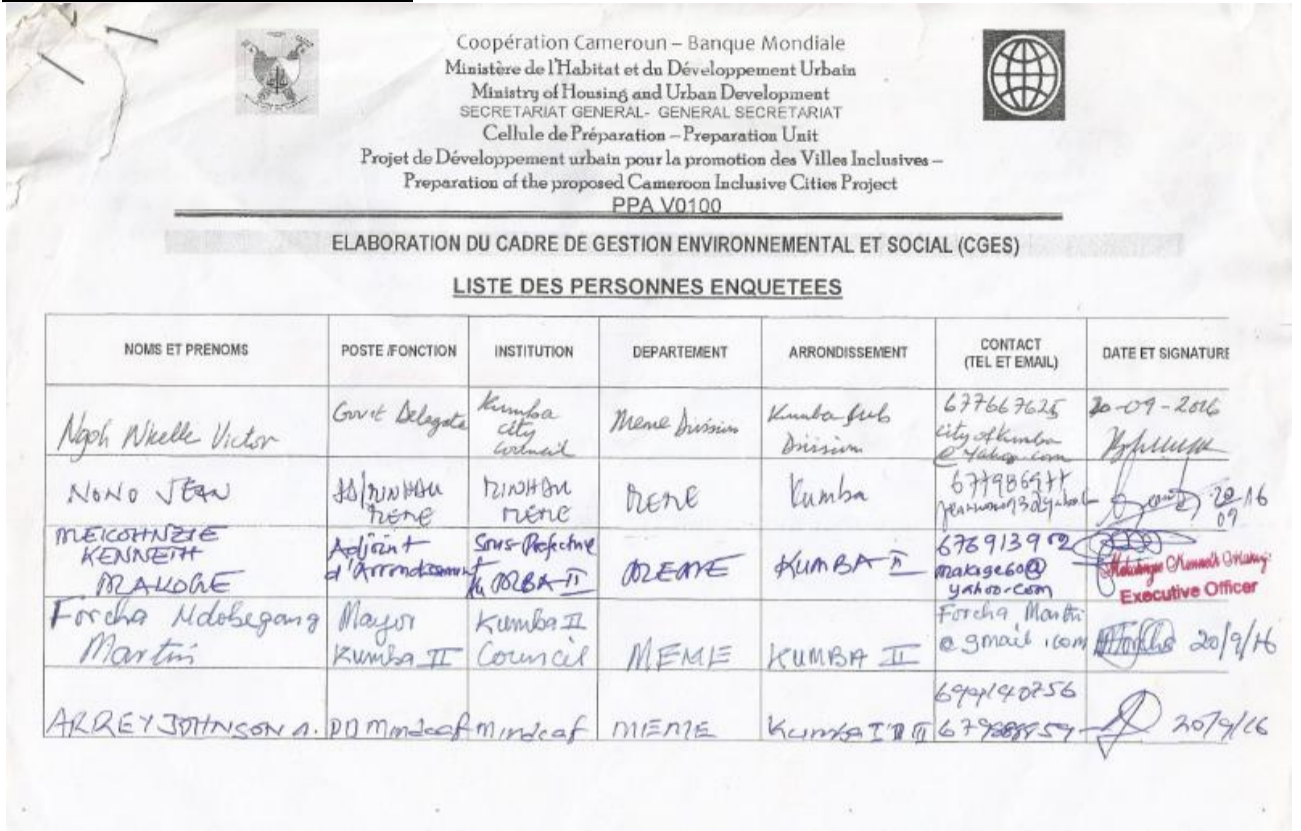 Coopération Cameroun – Banque Mondiale
Ministère de l'Habitat et du Développement Urbain
Ministry of Housing and Urban Development
SECRETARIAT GENERAL- GENERAL SECRETARIAT
Cellule de Préparation – Preparation Unit
Projet de Développement urbain pour la promotion des Villes Inclusives –
Preparation of the proposed Cameroon Inclusive Cities Project
PPA V0100
ELABORATION DU CADRE DE GESTION ENVIRONNEMENTAL ET SOCIAL (CGES)
LISTE DES PERSONNES ENQUETEES
NOMS ET PRENOMS
POSTE /FONCTION
INSTITUTION
DEPARTEMENT
ARRONDISSEMENT
CONTACT
(TEL ET EMAIL)
DATE ET SIGNATURE
Ngoh Victor
Gov't Delegate
Kumba
city
council
Meme Division
Kumba Sub
Division
677667625
city of kumba
@ yahoo.com
20-09-2016
NONO JEAN
MENE
MENE
Kumba
20
09 16
KENNETH
Adjoint
d'Arrondissement
KUMBA II
MEME
KUMBA II
676913902
yahoo.com
Executive Officer
Forcha Ndobegang
Martin
Mayor
Kumba II
Kumba II
Council
MEME
KUMBA II
Forcha Martin
@ gmail .com
20/9/16
ARREY JOHNSON A.
DD Mindcaf
Mindcaf
MEME
Kumba
20/9/16